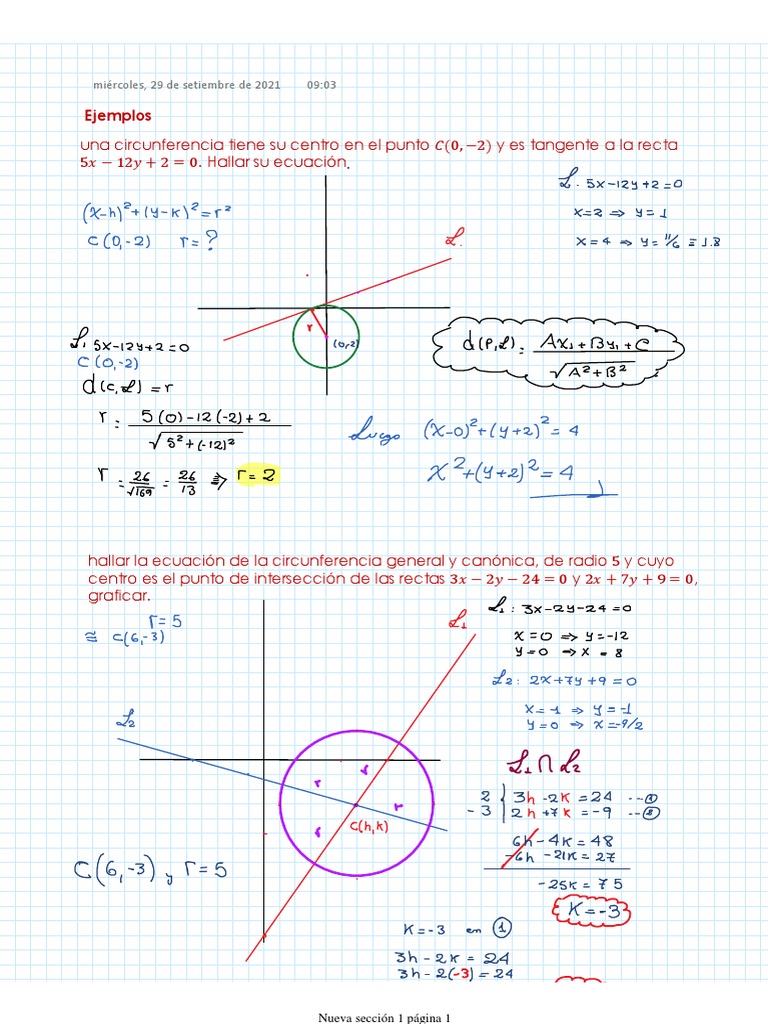 miércoles, 29 de setiembre de 2021 09:03
Ejemplos
una circunferencia tiene su centro en el punto C(0, −2) y es tangente a la recta
5x − 12y + 2 = 0. Hallar su ecuación.
L. 5x-12y+2=0
x=2 ⇒ y=1
x=4 ⇒ y=11/6 ≅ 1.8
(x-h)²+(y-k)²=r²
C(0,-2) r=?
L.
r
(0,-2)
L, 5x-12y+2=0
C(0,-2)
d(C,L)=r
d(P,L)= Ax₁+By₁+C
√A²+B²
r= 5(0)-12(-2)+2
√5²+(-12)²
r = 26/√169 = 26/13 ⇒ r=2
Luego (x-0)²+(y+2)²=4
x²+(y+2)²=4
hallar la ecuación de la circunferencia general y canónica, de radio 5 y cuyo
centro es el punto de intersección de las rectas 3x − 2y − 24 = 0 y 2x + 7y + 9 = 0,
graficar.
r=5
≅ C(6,-3)
L₁
L₁: 3x-2y-24=0
x=0 ⇒ y=-12
y=0 ⇒ x=8
L₂: 2x+7y+9=0
x=-1 ⇒ y=-1
y=0 ⇒ x=-9/2
L₂
L₁∩L₂
r
r
r
r
C(h,k)
2 3h-2k=24 ---①
-3 2h+7k=-9 ---②
6h-4k=48
-6h-21k=27
-25k=75
k=-3
C(6,-3) y r=5
k=-3 en ①
3h-2k=24
3h-2(-3)=24
Nueva sección 1 página 1